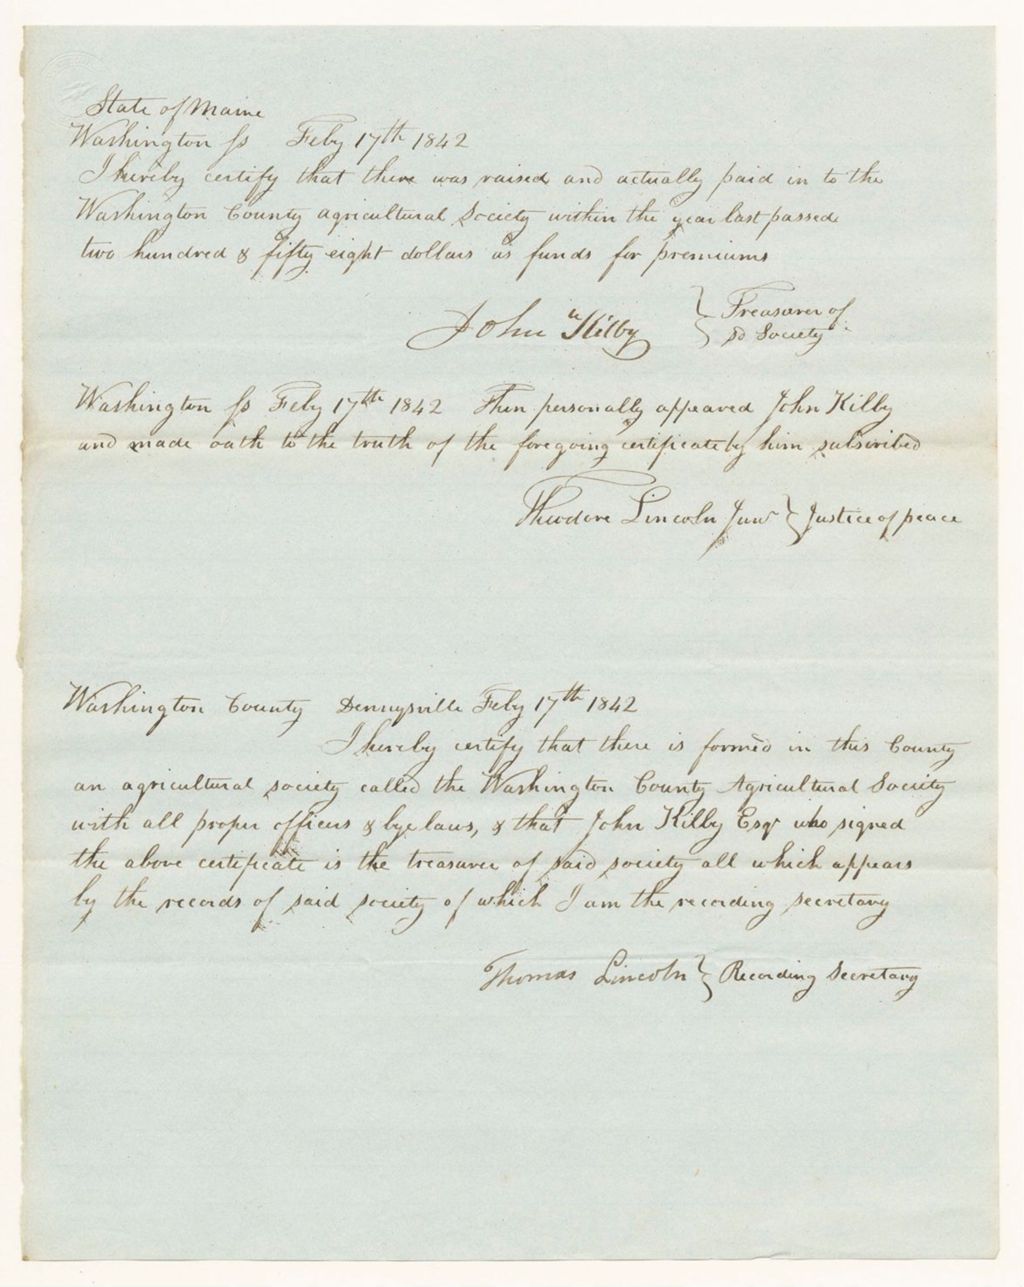 State of Maine
Washington ss Feby 17th 1842
I hereby certify that there was raised and actually paid in to the
Washington County agricultural Society within the year last passed
two hundred & fifty eight dollars as funds for premiums
John Kilby } Treasurer of
sd Society
Washington ss Feby 17th 1842 Then personally appeared John Kilby
and made oath to the truth of the foregoing certificate by him subscribed
Theodore Lincoln Junr } Justice of peace
Washington County Dennysville Feby 17th 1842
I hereby certify that there is formed in this County
an agricultural society called the Washington County Agricultural Society
with all proper officers & bye laws, & that John Kilby Esqr who signed
the above certificate is the treasurer of said society all which appears
by the records of said society of which I am the recording secretary
Thomas Lincoln } Recording Secretary